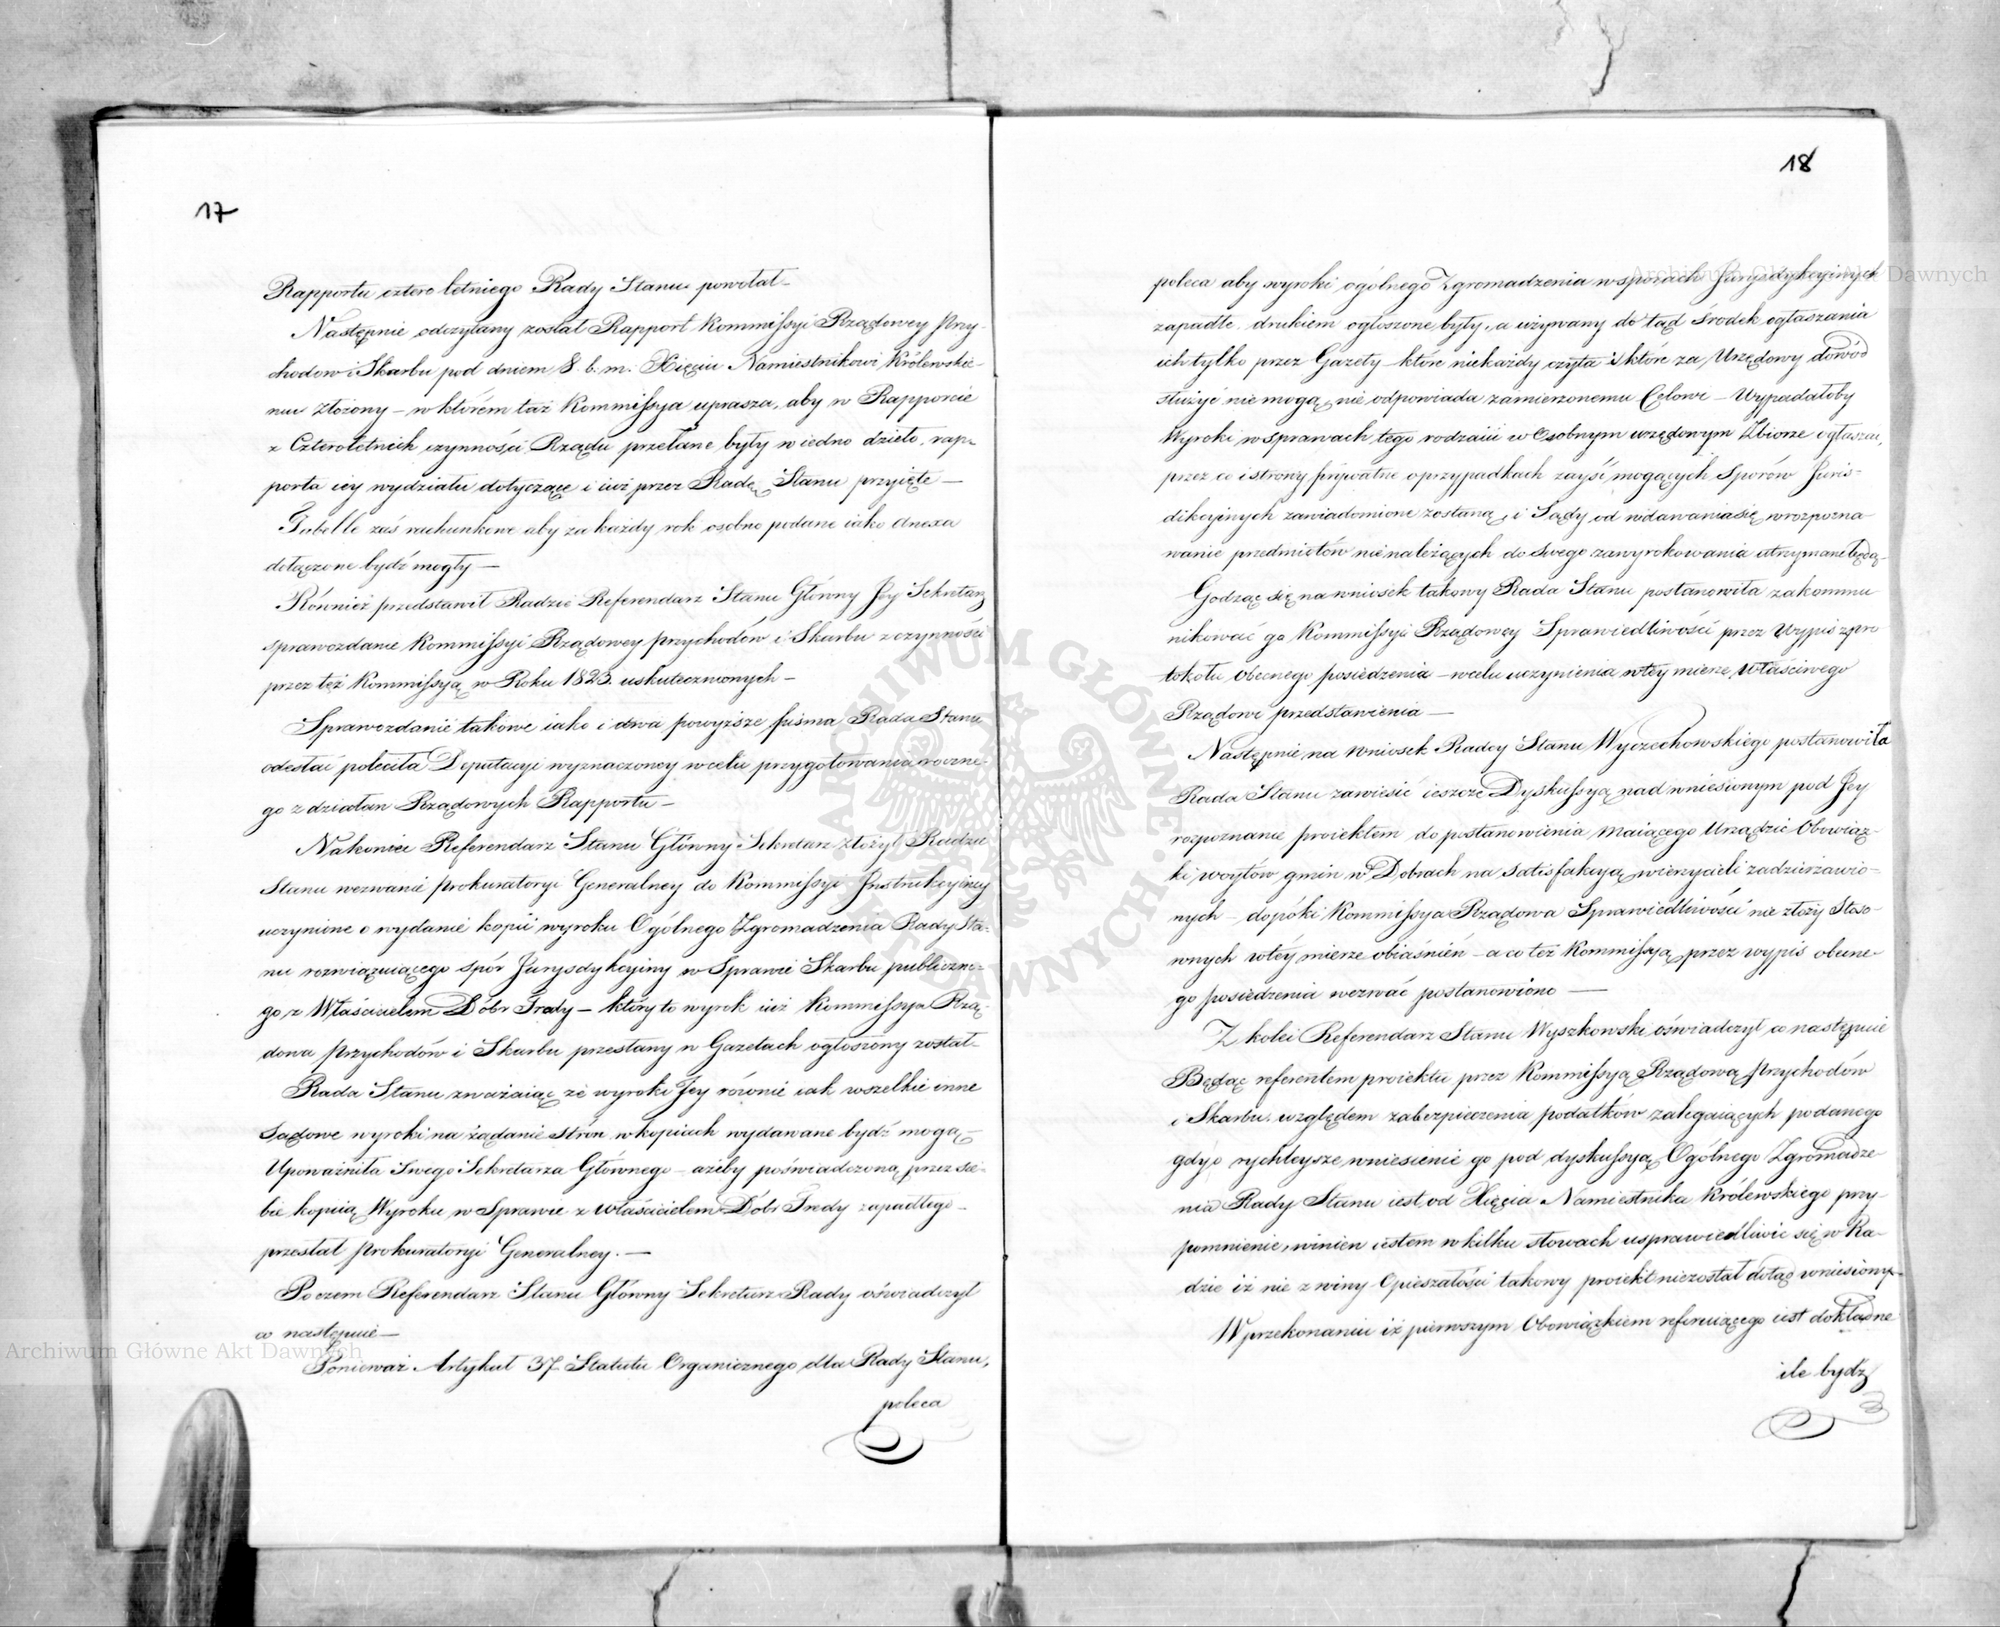 17
Rapportu cztero letniego Rady Stanu powołał
Następnie odczytany został Rapport Kommissyi Rządowey Przy-
chodow i Skarbu pod dniem 8. b. m. Xięciu Namiestnikowi Królewskie-
mu złożony – w którem taż Kommissya uprasza, aby w Rapporcie
z Czteroletnich czynności Rządu przelane były w iedno dzieło, rap-
porta iey wydziału dotyczące i iuż przez Radę Stanu przyięte –
Tabelle zaś rachunkowe aby za każdy rok osobno podane iako anexa
dołączone bydź mogły –
Również przedstawił Radzie Referendarz Stanu Główny Jey Sekretarz
sprawozdanie Kommissyi Rządowey Przychodów i Skarbu z czynności
przez też Kommissyą w Roku 1823. uskutecznionych –
Sprawozdanie takowe iako i dwa powyższe pisma Rada Stanu
odesłać poleciła Deputacyi wyznaczoney w celu przygotowania roczne-
go z działań Rządowych Rapportu –
Nakoniec Referendarz Stanu Główny Sekretarz złożył Radzie
Stanu wezwanie Prokuratoryi Generalney do Kommissyi Instrukcyiney
uczynione o wydanie kopii wyroku Ogólnego Zgromadzenia Rady Sta-
nu rozwiązuiącego spór Jurysdykcyiny w Sprawie Skarbu publiczne-
go z Właścicielem Dóbr Tredy – który to wyrok iuż Kommissya Rzą-
dowa Przychodów i Skarbu przesłany w Gazetach ogłoszony został
Rada Stanu zważaiąc że wyroki Jey równie iak wszelkie inne
Sądowe wyroki na żądanie stron w kopiach wydawane bydź mogą –
Upoważniła Swego Sekretarza Głównego – ażeby poświadczoną przez sie-
bie kopią Wyroku w Sprawie z właścicielem Dóbr Tredy zapadłego –
przesłał Prokuratoryi Generalney. –
Poczem Referendarz Stanu Główny Sekretarz Rady oświadczył
co następuie –
Ponieważ Artykuł 37 Statutu Organicznego dla Rady Stanu,
poleca
18
poleca aby wyroki ogólnego Zgromadzenia w sporach Jurysdykcyinych
zapadłe, drukiem ogłoszone były, a używany do tąd środek ogłaszania
ich tylko przez Gazety – które niekażdy czyta i które za Urzędowy dowód
służyć nie mogą, nie odpowiada zamierzonemu Celowi – Wypadałoby
Wyroki w sprawach tego rodzaiu w Osobnym urzędowym Zbiorze ogłaszać,
przez co i strony prywatne o przypadkach zayść mogących Sporów Juris-
dikcyinych zawiadomione zostaną, i Sądy od wdawania się w rozpozna-
wanie przedmiotów nie należących do Swego zawyrokowania utrzymane będą –
Godząc się na wniosek takowy Rada Stanu postanowiła zakommu-
nikować go Kommissyi Rządowey Sprawiedliwości przez Wypis z pro-
tokołu obecnego posiedzenia – w celu uczynienia w téy mierze, Właściwego
Rządowi przedstawienia –
Następnie na wniosek Radcy Stanu Wyczechowskiego postanowiła
Rada Stanu zawiesić ieszcze Dyskussyą nad wniesionym pod Jey
rozpoznanie proiektem do postanowienia maiącego Urządzić Obowiąz-
ki woytów gmin w Dobrach na satisfakcyą wierzycieli zadzierżawio-
nych – dopóki Kommissya Rządowa Sprawiedliwości nie złoży stoso-
wnych w téy mierze obiaśnień – a co też Kommissyą przez wypis obecne-
go posiedzenia wezwać postanowiono –
Z kolei Referendarz Stanu Wyszkowski oświadczył co następuie
Będąc referentem proiektu przez Kommissyą Rządową Przychodów
i Skarbu, względem zabezpieczenia podatków zalegaiących podanego
gdy o rychleysze wniesienie go pod dyskussyą Ogólnego Zgromadze-
nia Rady Stanu iest od Xięcia Namiestnika Królewskiego przy-
pomnienie, winien iestem w kilku słowach usprawiedliwić się w Ra-
dzie iż nie z winy Opieszałości takowy proiekt niezostał dotąd wniesiony –
W przekonaniu iż pierwszym Obowiązkiem referuiącego iest dokładne
ile bydź
Archiwum Główne Akt Dawnych
Archiwum Główne Akt Dawnych
ARCHIWUM GŁÓWNE AKT DAWNYCH